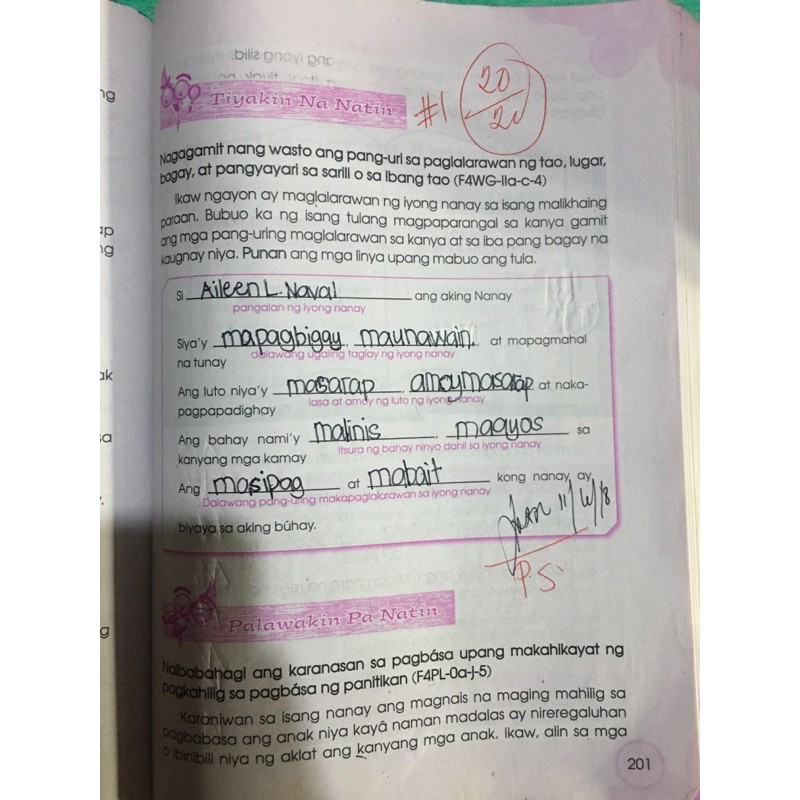 ang iyong silid.
Tiyakin Na Natin
#1
20
20
Nagagamit nang wasto ang pang-uri sa paglalarawan ng tao, lugar,
bagay, at pangyayari sa sarili o sa ibang tao (F4WG-IIa-c-4)
Ikaw ngayon ay maglalarawan ng iyong nanay sa isang malikhaing
paraan. Bubuo ka ng isang tulang magpaparangal sa kanya gamit
ang mga pang-uring maglalarawan sa kanya at sa iba pang bagay na
kaugnay niya. Punan ang mga linya upang mabuo ang tula.
Si Aileen L. Naval ang aking Nanay
pangalan ng iyong nanay
Siya'y mapagbigay, maunawain, at mapagmahal
dalawang ugaling taglay ng iyong nanay
na tunay
Ang luto niya'y masarap, amoy masarap at naka-
lasa at amoy ng luto ng iyong nanay
pagpapadighay
Ang bahay nami'y malinis, maayos sa
itsura ng bahay ninyo dahil sa iyong nanay
kanyang mga kamay
Ang masipag at mabait kong nanay ay
Dalawang pang-uring makapaglalarawan sa iyong nanay
biyaya sa aking búhay.
P.S
Palawakin Pa Natin
Naibabahagi ang karanasan sa pagbása upang makahikayat ng
pagkahilig sa pagbása ng panitikan (F4PL-0a-j-5)
Karaniwan sa isang nanay ang magnais na maging mahilig sa
pagbabasa ang anak niya kayâ naman madalas ay nireregaluhan
o ibinibili niya ng aklat ang kanyang mga anak. Ikaw, alin sa mga
201